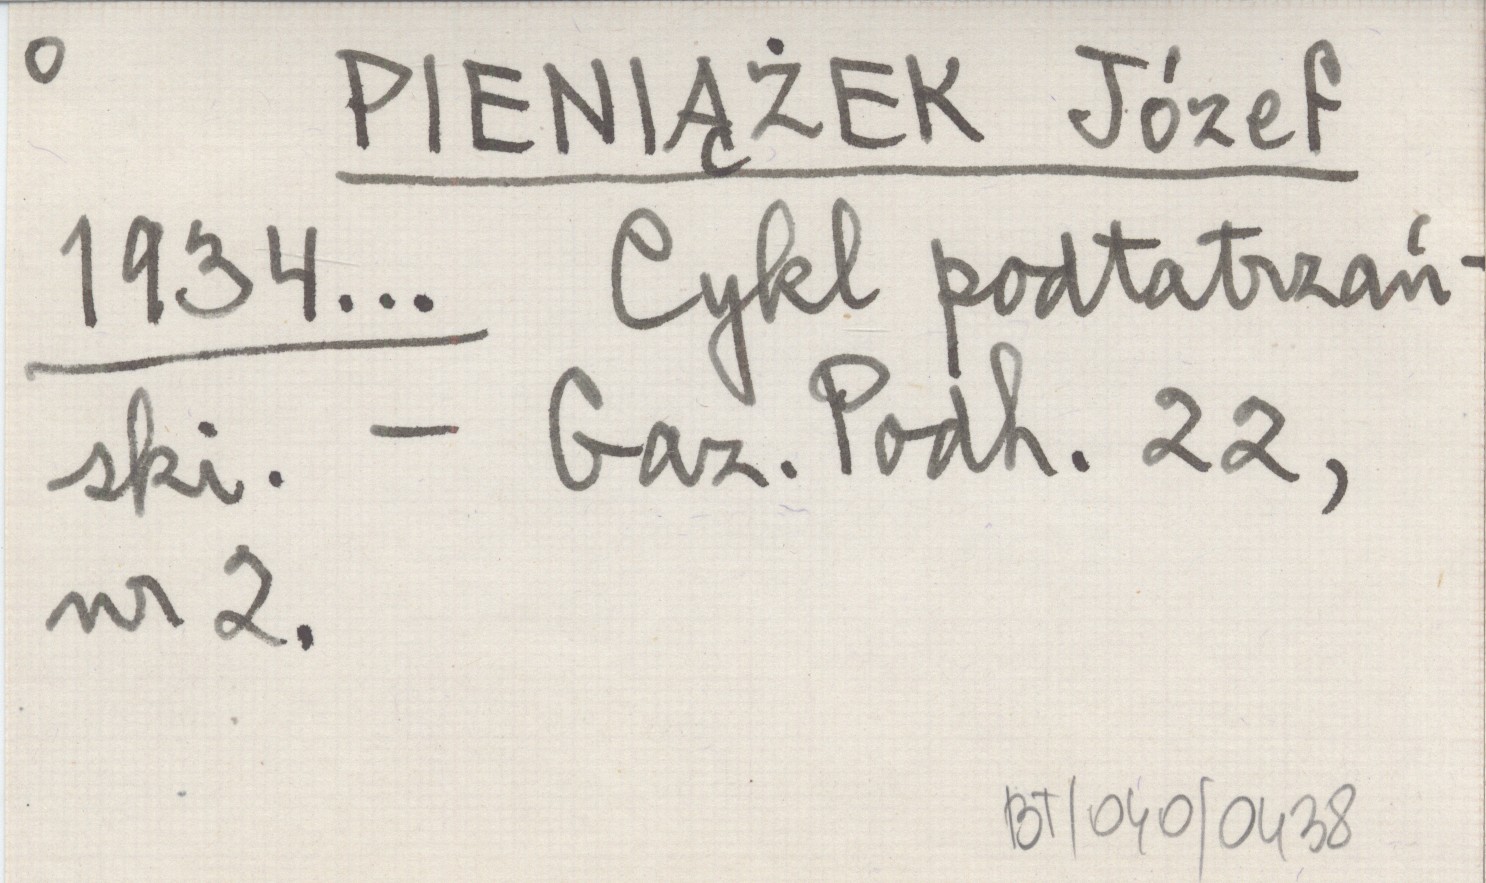 o PIENIĄŻEK Józef
1934... Cykl podtatrzań-
ski. — Gaz. Podh. 22,
nr 2.
BT/040/0438